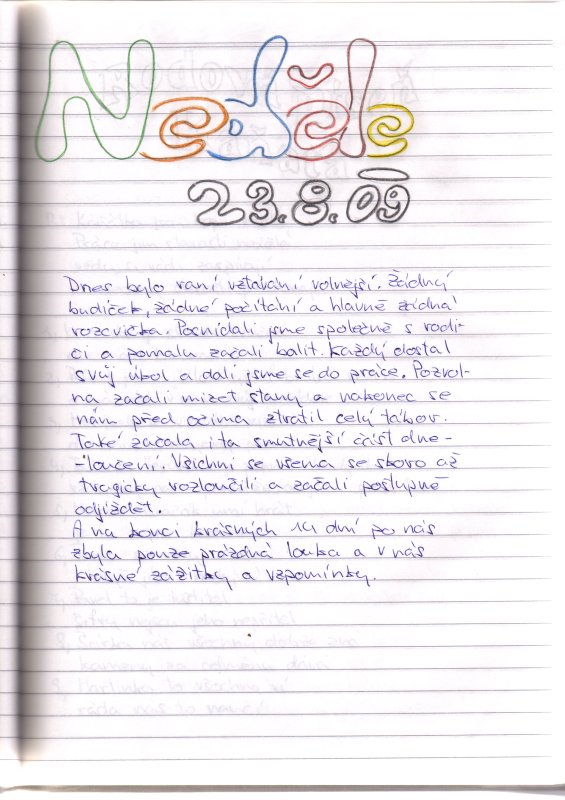 Neděle
23.8.09
Dnes bylo raní vstávání volnější. Žádný
budíček, žádné počítání a hlavně žádná
rozcvička. Posnídali jsme společně s rodi-
či a pomalu začali balit. Každý dostal
svůj úkol a dali jsme se do práce. Pozvol-
na začali mizet stany a nakonec se
nám před očima ztratil celý tábor.
Také začala i ta smutnější část dne-
-loučení. Všichni se všema se skoro až
tragicky rozloučili a začali postupně
odjíždět.
A na konci krásných 14 dní po nás
zbyla pouze prázdná louka a v nás
krásné zážitky a vzpomínky.